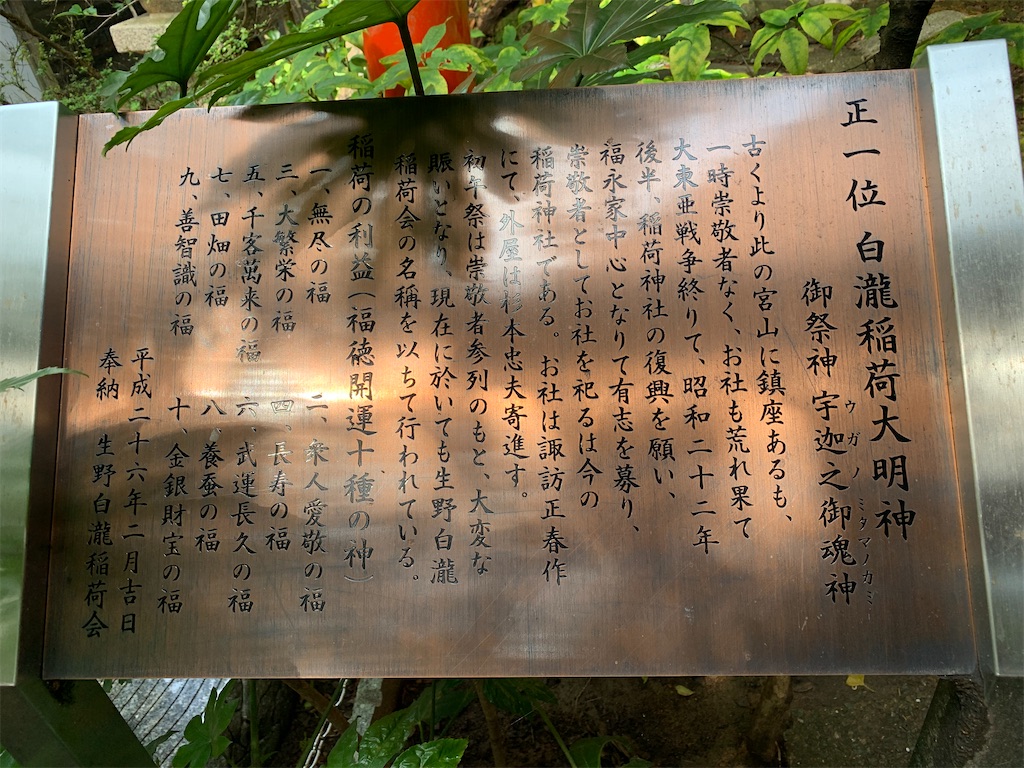 正一位 白瀧稲荷大明神
御祭神 宇迦之御魂神
ウガノミタマノカミ
古くより此の宮山に鎮座あるも、
一時崇敬者なく、お社も荒れ果て
大東亜戦争終りて、昭和二十二年
後半、稲荷神社の復興を願い、
福永家中心となりて有志を募り、
崇敬者としてお社を祀るは今の
稲荷神社である。お社は諏訪正春作
にて、外屋は杉本忠夫寄進す。
初午祭は崇敬者参列のもと、大変な
賑いとなり、現在に於いても生野白瀧
稲荷会の名称を以ちて行われている。
稲荷の利益(福徳開運十種の神)
一、無尽の福 二、衆人愛敬の福
三、大繁栄の福 四、長寿の福
五、千客萬来の福 六、武運長久の福
七、田畑の福 八、養蚕の福
九、善智識の福 十、金銀財宝の福
平成二十六年二月吉日
奉納 生野白瀧稲荷会